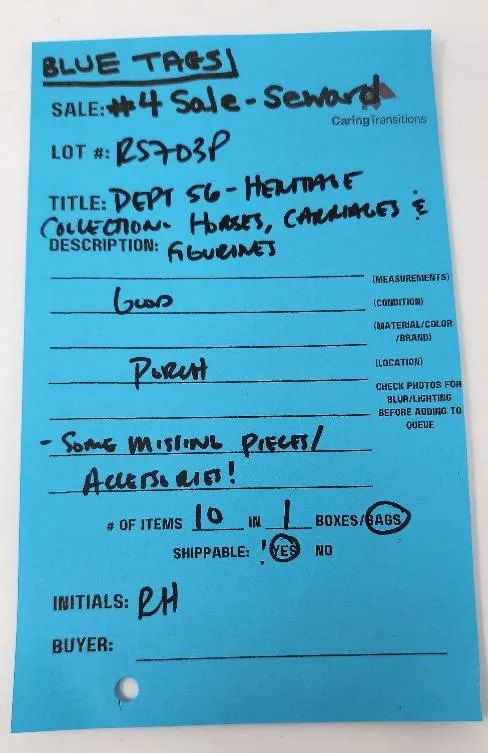 BLUE TAGS
SALE: #4 Sale - Seward
CaringTransitions
LOT #: RS703P
TITLE: DEPT 56 - HERITAGE
COLLECTION - HORSES, CARRIAGES &
DESCRIPTION: FIGURINES
(MEASUREMENTS)
GOOD (CONDITION)
(MATERIAL/COLOR
/BRAND)
PORCH (LOCATION)
CHECK PHOTOS FOR
BLUR/LIGHTING
BEFORE ADDING TO
QUEUE
- SOME MISSING PIECES/
ACCESSORIES!
# OF ITEMS 10 IN 1 BOXES/BAGS
SHIPPABLE: YES NO
INITIALS: RH
BUYER: